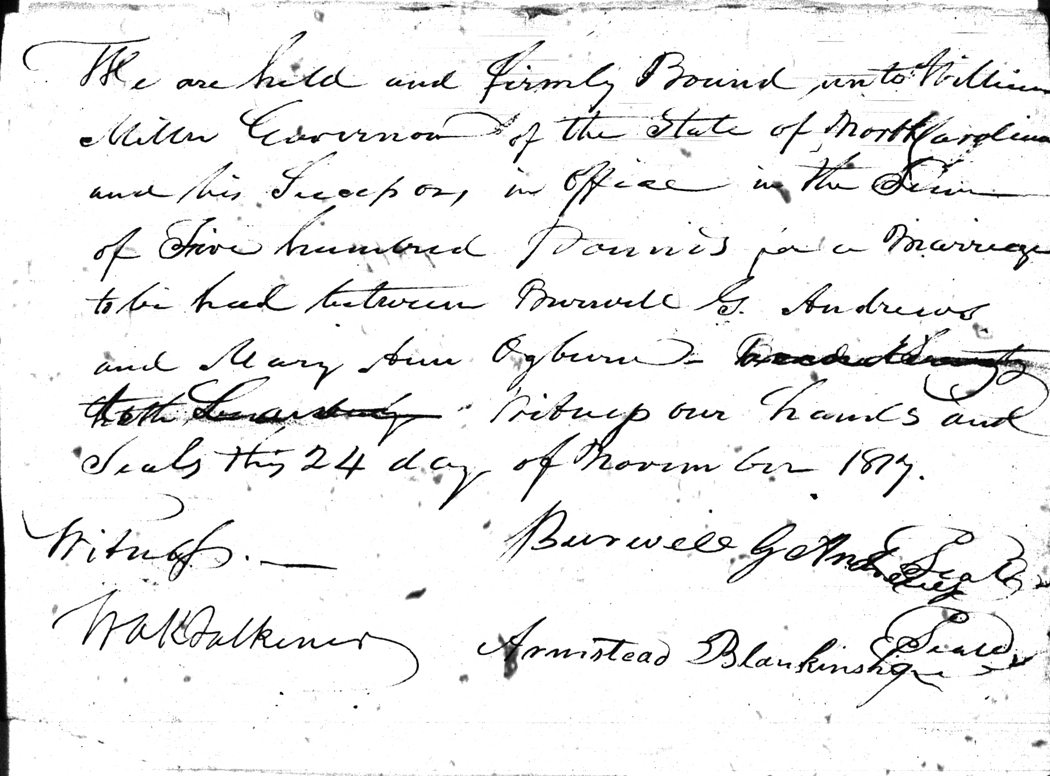 We are held and firmly Bound unto William
Miller Governor of the State of North Carolina
and his Successors, in office in the Sum
of Five hundred Pounds for a Marriage
to be had between Burwell G. Andrews
and Mary Ann Ogburn –
Witness our hands and
Seals this 24 day of November 1817.
Witness. —
Burwell G Andrews Seal
WAK Falkener
Armstead Blankinship Seal